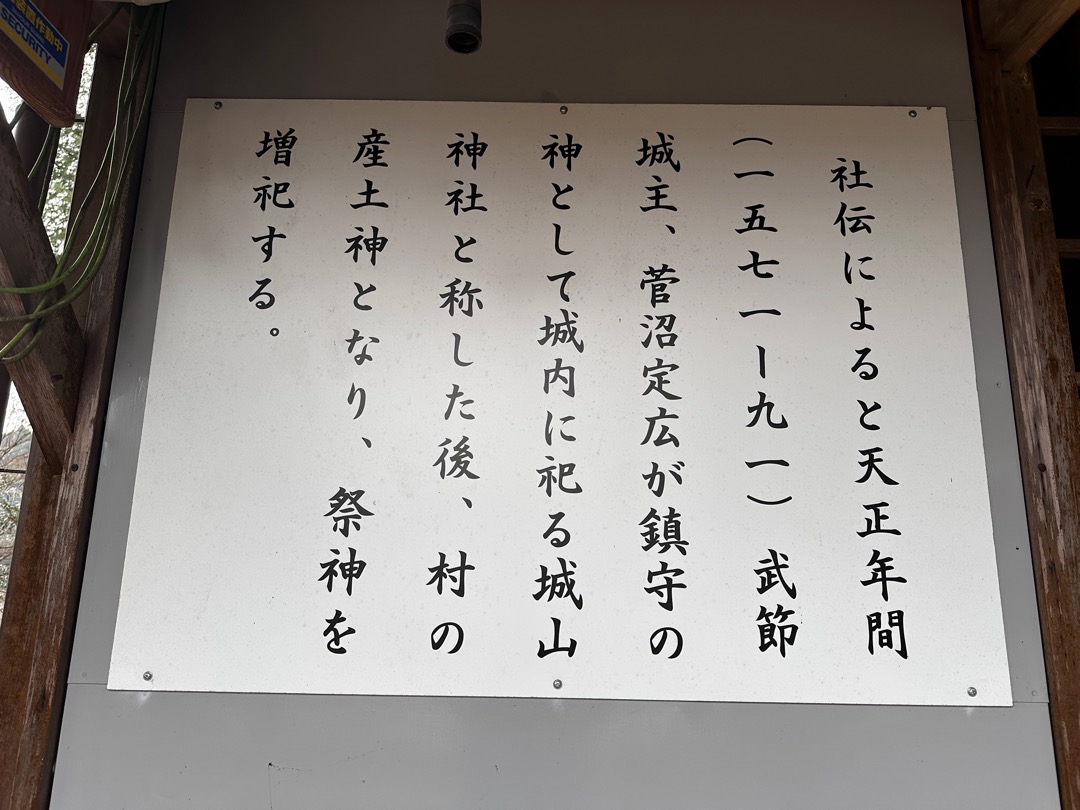 社伝によると天正年間
（一五七一ー九一）武節
城主、菅沼定広が鎮守の
神として城内に祀る城山
神社と称した後、村の
産土神となり、祭神を
増祀する。
作動中
SECURITY